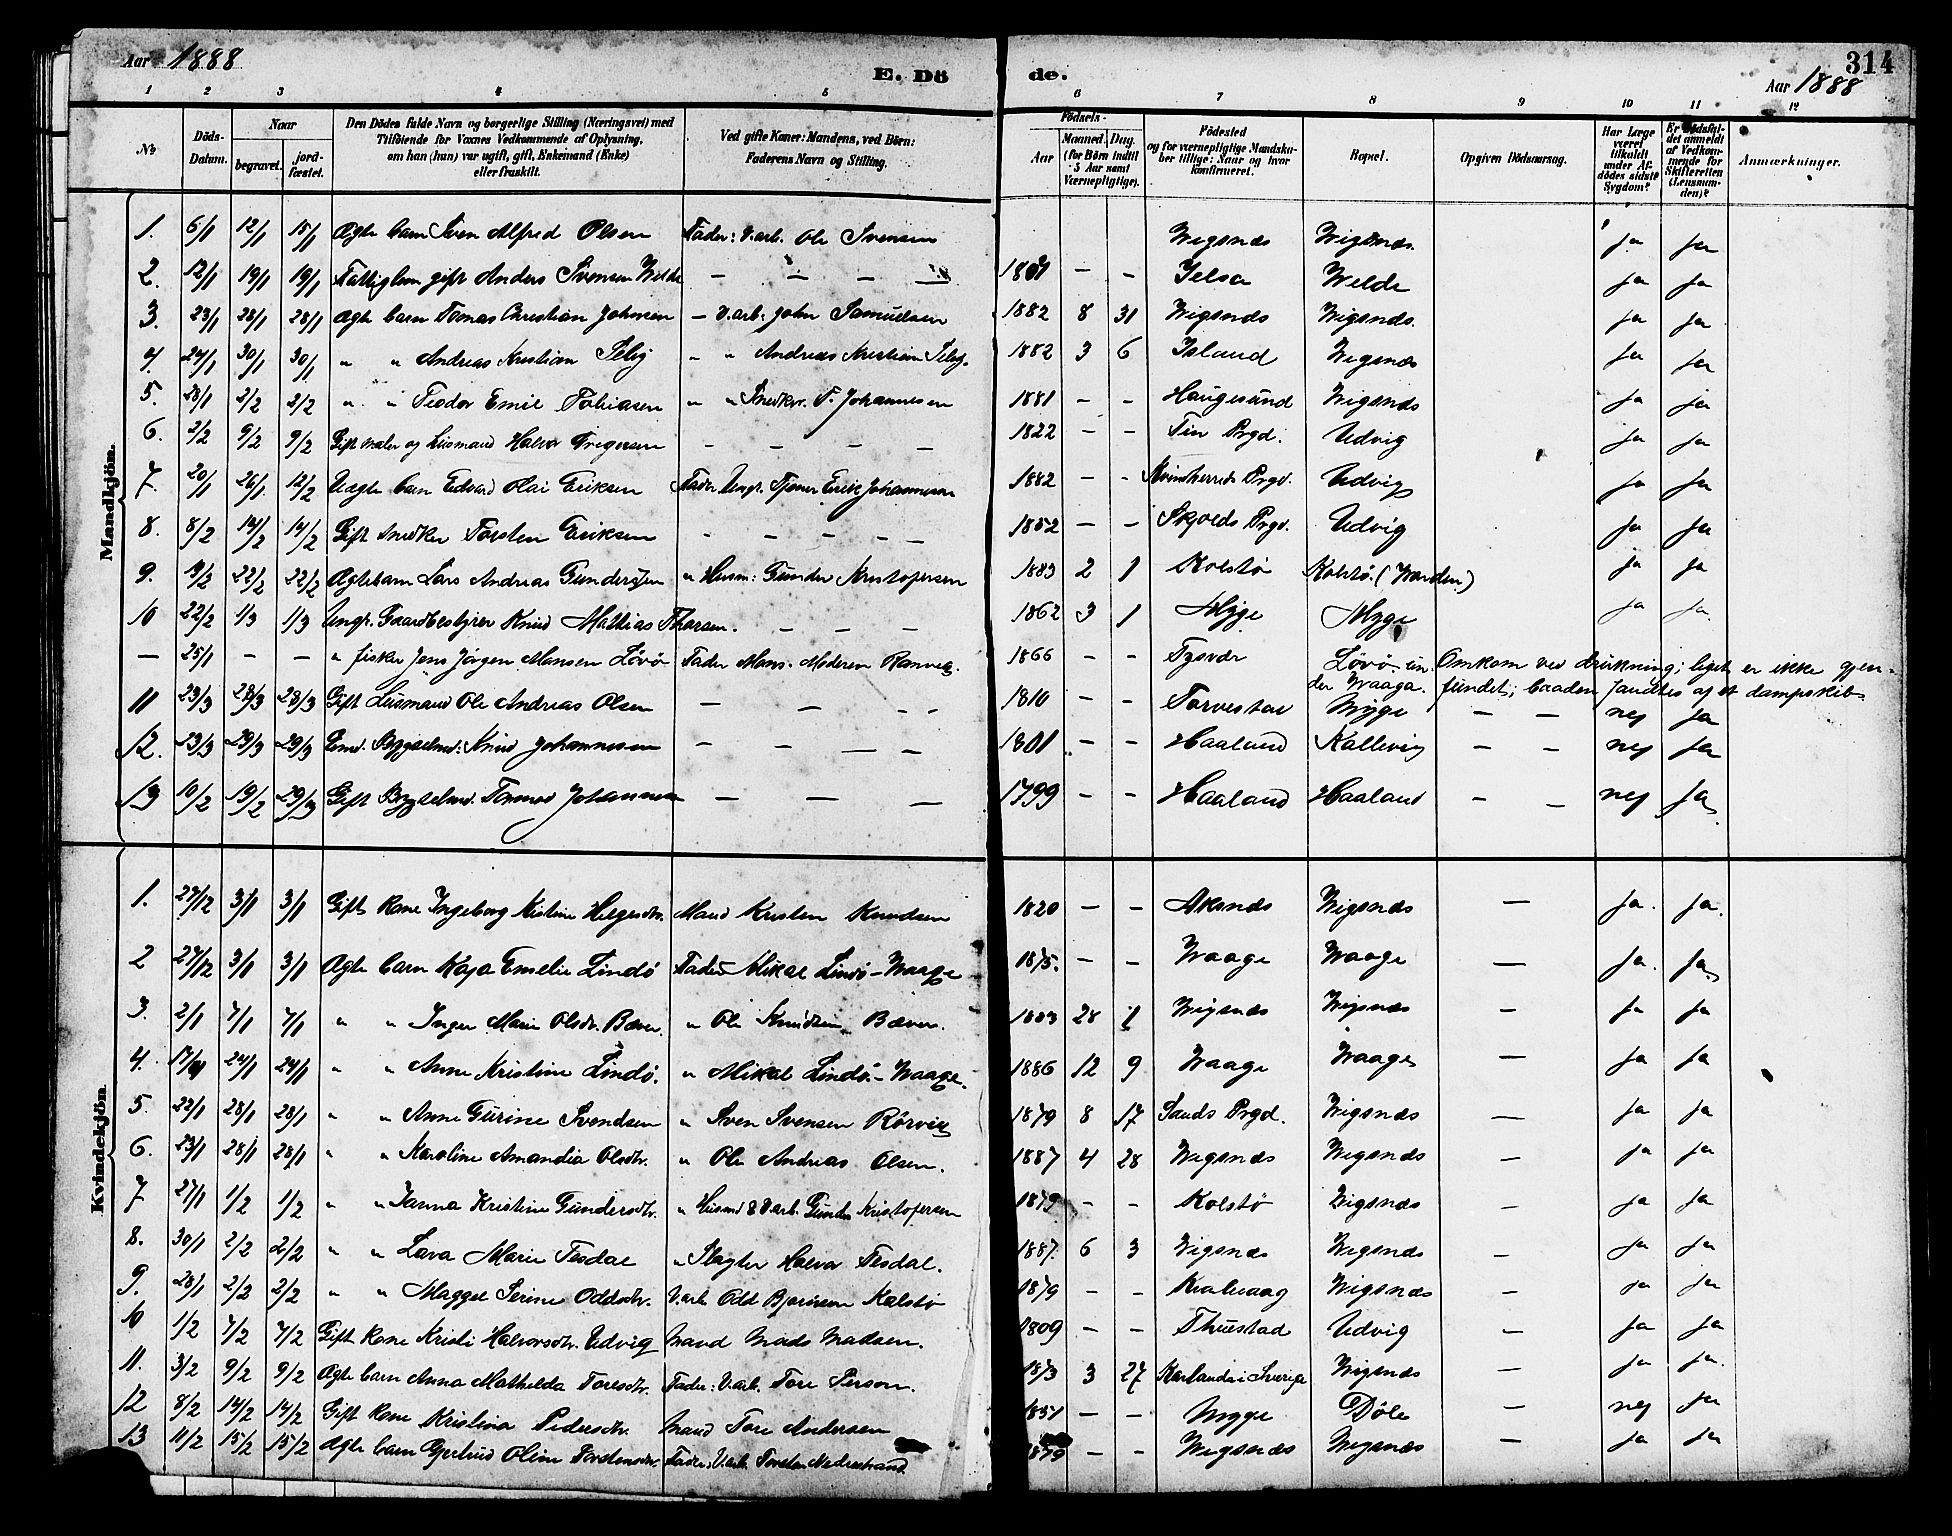 Aar 1888
E. Dö
de.
314
Aar 1888
1 2 3 4 5 6 7 8 9 10 11 12
№ Döds-Datum. Naar begravet. jord-fæstet. Den Dödes fulde Navn og borgerlige Stilling (Næringsvei) med Tilföiende for Voxnes Vedkommende af Oplysning, om han (hun) var ugift, gift, Enkemand (Enke) eller fraskilt. Ved gifte Koner: Mandens, ved Börn: Faderens Navn og Stilling. Födsels- Aar Maaned. Dag. (for Börn indtil 5 Aar samt Værnepligtige). Födested og for værnepligtige Mandskaber tillige: Naar og hvor konfirmeret. Bopæl. Opgiven Dödsaarsag. Har Læge været tilkaldt under Afdödes sidste Sygdom? Er Dödsfaldet anmeldt af Vedkommende for Skifteretten (Lensmanden)? Anmærkninger.
Mandkjön.
1. 6/1 12/1 15/1 Ægte barn Sven Alfred Olsen Fader: V. arb. Ole Svensen Vigsnæs Vigsnæs. ja ja
2. 12/1 19/1 19/1 Fattiglem gift Anders Svensen Velde — — — — — — Jelsa Velde ja ja
3. 23/1 28/1 28/1 Ægte barn Tomas Christian Johnsen — V. arb: John Samuelsen 1882 8 31 Vigsnæs Vigsnæs. ja ja
4. 24/1 30/1 30/1 " " Andreas Kristian Selig " " Andreas Kristian Selig. 1882 3 6 Island Vigsnæs ja ja
5. 28/1 2/2 2/2 " " Teodor Emil Tobiasen " " Snedker. T. Johannesen 1881 — — Haugesund Vigsnæs ja ja
6. 2/2 9/2 9/2 Gift maler og Huusmand Halvor Gregersen — — — — 1822 — — Tin Prgd. Udvig ja ja
7. 20/1 26/1 12/2 Uægte barn Edvard Olai Eriksen Fader. Ungk. Tjener Erik Johannesen 1882 — — Kvinherreds Prgd. Udvig ja ja
8. 8/2 14/2 14/2 Gift snedker Torsten Eriksen — — — — — 1852 — — Skjolds Prgd. Udvig ja ja
9. 22/2 22/2 Ægte barn Lars Andreas Gundersen " Husm: Gunder Kristofersen 1883 2 1 Kolstö Kolstö. ja ja
10 22/2 1/3 1/3 Ungk. Gaardbestyrer Knud Mathias Thorsen. — — — 1862 3 1 Myge Myge ja ja
— 25/1 — — " fisker Jens Jörgen Monsen Lövö Fader Mons. Moderen Ranveig. 1866 — — Tysvær Lövö un- Omkom ved drukning; liget er ikke gjen-
der Waaga. fundet; baaden fandtes af et dampskib
11 23/3 28/3 28/3 Gift Huusmand Ole Andreas Olsen — — — — 1810 — — Torvestad Myge — — nej ja
12. 23/3 29/3 29/3 Knud Johannesen — — — — 1801 — — Haaland Kallevig — — nej ja
13 10/2 19/2 29/3 Gift Bygselmd. Tormod Johannesen — — — 1799 — — Haaland Haaland — — nej ja
Kvindekjön
1. 27/12 3/1 3/1 Gift kone Ingeborg Kristine Helgesdtr. Mand Kristen Knudsen 1820 — — Aksnæs Vigsnæs — ja. ja.
2 27/12 3/1 3/1 Ægte barn Kaja Emelie Lindö Fader Mikal Lindö – Waage 1875. — — Waage Waage — ja. ja.
3. 2/1 7/1 7/1 " " Inger Marie Olsdtr. Bæver. " Ole Knudsen Bæver. 1883 28 1 Vigsnæs Vigsnæs — ja ja
4. 24/1 24/1 " " Anne Kristine Lindö. " Mikal Lindö – Waage. 1886 12 9 Waage Waage — ja ja
5. 22/1 28/1 28/1 " " Anne Gurine Svendsen " Sven Svensen Rörvig 1879 8 17 Sauds Prgd. Vigsnæs — ja ja
6. 23/1 28/1 28/1 " " Karoline Amandia Olsdtr. " Ole Andreas Olsen. 1887 4 28 Vigsnæs Vigsnæs — ja ja
7 27/1 1/2 1/2 " " Janna Kristine Gundersdtr. " Husmd & V. arb. Gunder Kristofersen 1879 — — Kolstö Vigsnæs — ja ja
8. 30/1 2/2 2/2 " " Lava Marie Tesdal " Slagter Halvor Tesdal. 1887. 6 3 Vigsnæs Vigsnæs — ja ja
9. 28/1 2/2 2/2 " " Maggel Serine Oddsdtr. V. arb. Odd Bjørnsen Kalstö 1879 — — Kvalvaag Vigsnæs — ja ja
10 1/2 7/2 7/2 Gift kone Kristi Halvorsdtr. Udvig Mand Mads Madsen. 1809 — — Thuestad Udvig — ja ja
11. 3/2 9/2 9/2 Ægte barn Anna Mathilda Toresdtr. Fader: V. arb. Tore Person. 1873 3 27 Sverige Vigsnæs — ja ja
12 8/2 14/2 14/2 Gift kone Kristina Pedersdtr. Mand Tore Andersen — — Mygge Döle — nej ja
13 11/2 15/2 15/2 Ægte barn Gjertrud Oline Torstensdtr. Fader: V. arb. Torsten Nedrestrand 1879 — — Vigsnæs Vigsnæs — ja ja